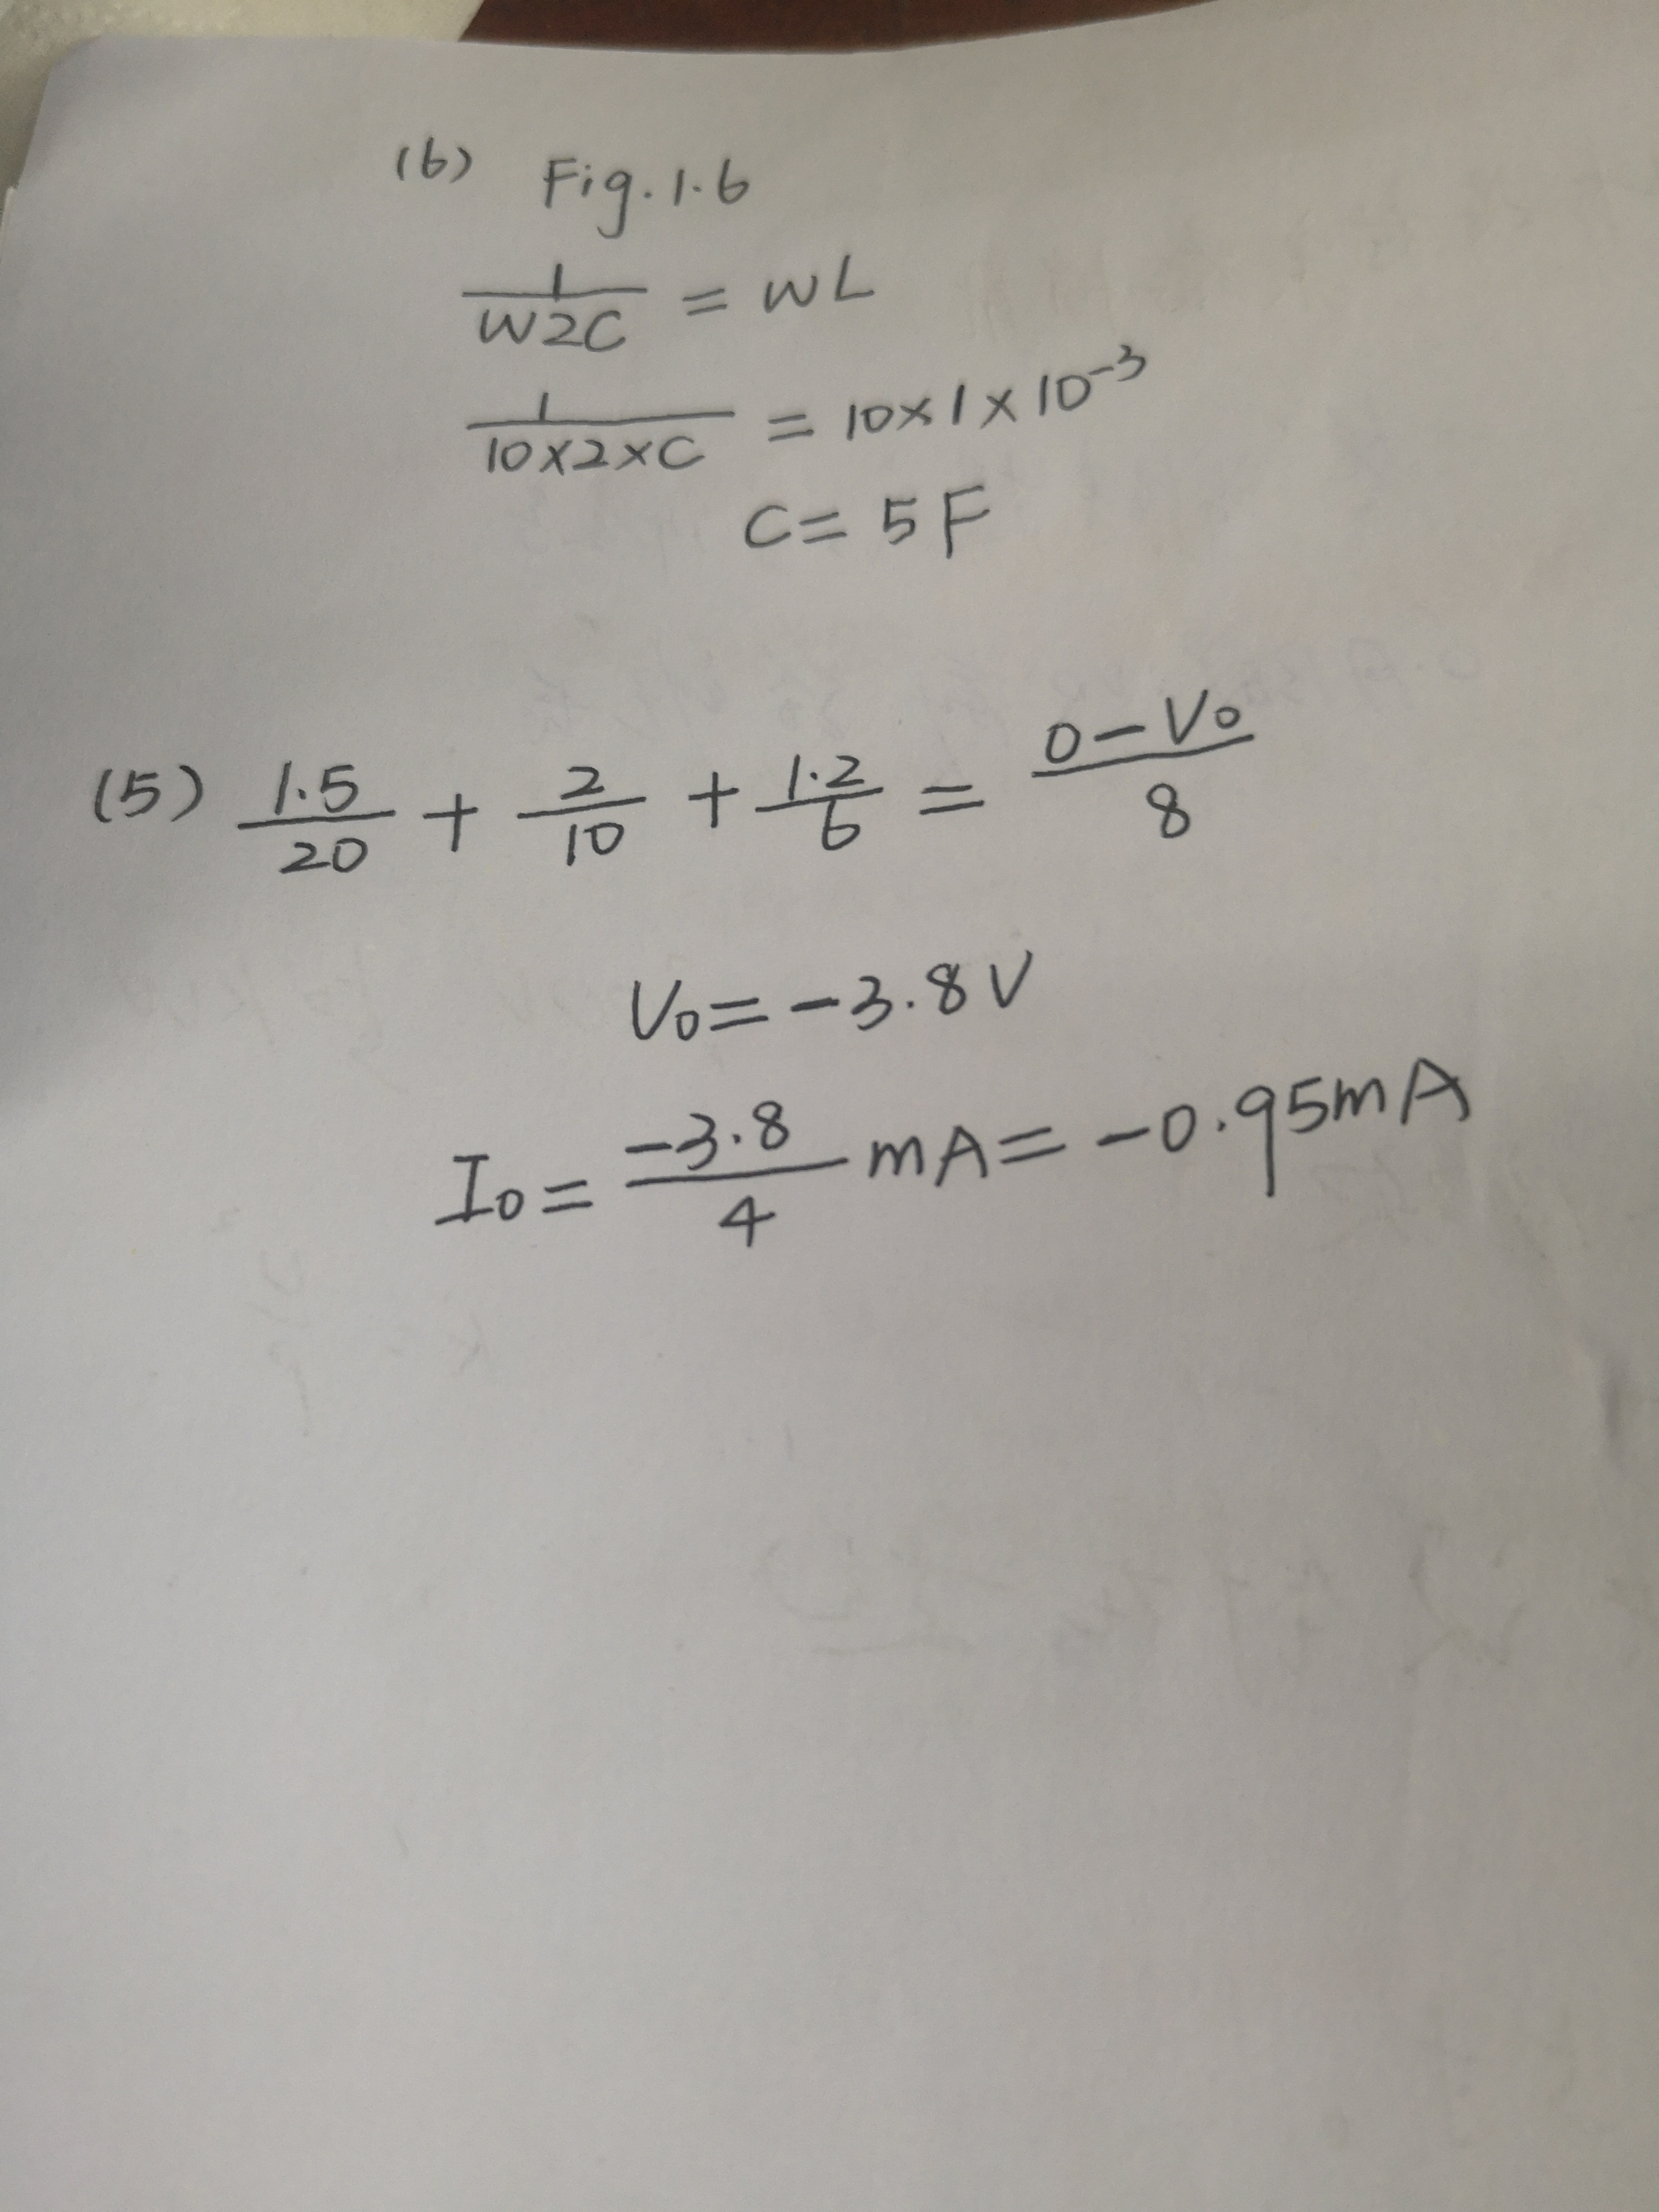 (6) Fig.1.6
1/W2C = WL
1/10×2×C = 10×1×10⁻³
C = 5F
(5) 1.5/20 + 2/10 + 1.2/6 = 0-V₀/8
V₀ = -3.8V
I₀ = -3.8/4 mA = -0.95mA